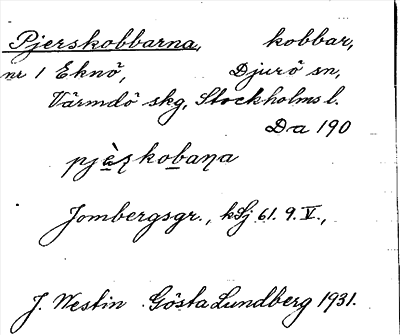 Pjerskobbarna, kobbar,
nr 1 Eknö, Djurö sn,
Värmdö skg, Stockholms l.
Da 190
pjèʂkobaɳa
Jombergsgr., kSj 61. 9. V.,
J. Westin Gösta Lundberg 1931.